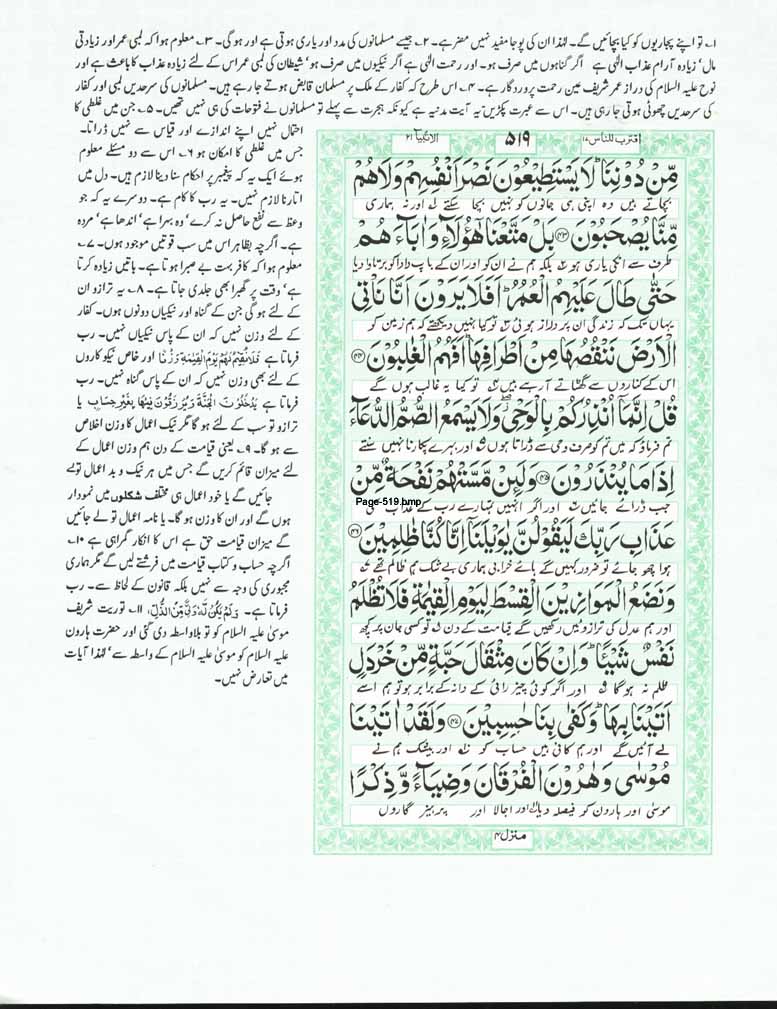 ۱۔ تو اپنے پجاریوں کو کیا بچائیں گے۔ لہٰذا ان کی پوجا مفید نہیں مضر ہے۔ ۲۔ جیسے مسلمانوں کی مدد اور یاری ہوتی ہے اور ہوگی۔ ۳۔ معلوم ہوا کہ لمبی عمر اور زیادتی
مال' زیادہ آرام عذاب الٰہی ہے اگر گناہوں میں صرف ہو۔ اور رحمت الٰہی ہے اگر نیکیوں میں صرف ہو' شیطان کی لمبی عمر اس کے لئے زیادہ عذاب کا باعث ہے اور
نوح علیہ السلام کی دراز عمر شریف عین رحمت پروردگار ہے۔ ۴۔ اس طرح کہ کفار کے ملک پر مسلمان قابض ہوتے جا رہے ہیں۔ مسلمانوں کی سرحدیں لمبی اور کفار
کی سرحدیں چھوٹی ہوتی جا رہی ہیں۔ اس سے عبرت پکڑیں یہ آیت مدنیہ ہے کیونکہ ہجرت سے پہلے تو مسلمانوں نے فتوحات کی ہی نہیں تھیں۔ ۵۔ جن میں غلطی کا
احتمال نہیں اپنے اندازے اور قیاس سے نہیں ڈراتا۔
جس میں غلطی کا امکان ہو ۶۔ اس سے دو مسئلے معلوم
ہوئے ایک یہ کہ پیغمبر پر احکام سنا دینا لازم ہیں۔ دل میں
اتارنا لازم نہیں۔ یہ رب کا کام ہے۔ دوسرے یہ کہ جو
وعظ سے نفع حاصل نہ کرے' وہ بہرا ہے' اندھا ہے' مردہ
ہے۔ اگرچہ بظاہر اس میں سب قوتیں موجود ہوں۔ ۷۔
معلوم ہوا کہ کافر بہت بے صبرا ہوتا ہے۔ باتیں زیادہ کرتا
ہے' وقت پر گھبرا بھی جلدی جاتا ہے۔ ۸۔ یہ ترازو ان
کے لئے ہوگی جن کے گناہ اور نیکیاں دونوں ہوں۔ کفار
کے لئے وزن نہیں کہ ان کے پاس نیکیاں نہیں۔ رب
فرماتا ہے فَلَا نُقِيْمُ لَهُمْ يَوْمَ الْقِيٰمَةِ وَزْنًا اور خاص نیکوکاروں
کے لئے بھی وزن نہیں کہ ان کے پاس گناہ نہیں۔ رب
فرماتا ہے يَدْخُلُوْنَ الْجَنَّةَ وَيُرْزَقُوْنَ فِيْهَا بِغَيْرِ حِسَابٍ یا
ترازو تو سب کے لئے ہوگا مگر نیک اعمال کا وزن اخلاص
سے ہوگا۔ ۹۔ یعنی قیامت کے دن ہم وزن اعمال کے
لئے میزان قائم کریں گے جس میں ہر نیک و بد اعمال تولے
جائیں گے یا خود اعمال ہی مختلف شکلوں میں نمودار
ہوں گے اور ان کا وزن ہوگا۔ یا نامہ اعمال تولے جائیں
گے میزان قیامت حق ہے اس کا انکار گمراہی ہے ۱۰۔
اگرچہ حساب و کتاب قیامت میں فرشتے لیں گے مگر ہماری
مجبوری کی وجہ سے نہیں بلکہ قانون کے لحاظ سے۔ رب
فرماتا ہے۔ وَلَمْ يَكُنْ لَّهٗ وَلِيٌّ مِّنَ الذُّلِّ، ۱۱۔ توریت شریف
موسیٰ علیہ السلام کو تو بلاواسطہ دی گئی اور حضرت ہارون
علیہ السلام کو موسیٰ علیہ السلام کے واسطہ سے' لہٰذا آیات
میں تعارض نہیں۔
اقترب للناس ۱۷
۵۱۹
الانبیآء ۲۱
مِّنْ دُوْنِنَا ؕ لَا يَسْتَطِيْعُوْنَ نَصْرَ اَنْفُسِهِمْ وَلَا هُمْ
بچاتے ہیں وہ اپنی ہی جانوں کو نہیں بچا سکتے اور نہ ہماری
مِّنَّا يُصْحَبُوْنَ ﴿۴۳﴾ بَلْ مَتَّعْنَا هٰٓؤُلَآءِ وَاٰبَآءَهُمْ
طرف سے انکی یاری ہو بلکہ ہم نے ان کو اور ان کے باپ دادا کو برتاوا دیا
حَتّٰى طَالَ عَلَيْهِمُ الْعُمُرُ ؕ اَفَلَا يَرَوْنَ اَنَّا نَاْتِى
یہاں تک کہ زندگی ان پر دراز ہوئی تو کیا نہیں دیکھتے کہ ہم زمین کو
الْاَرْضَ نَنْقُصُهَا مِنْ اَطْرَافِهَا ؕ اَفَهُمُ الْغٰلِبُوْنَ ﴿۴۴﴾
اس کے کناروں سے گھٹاتے آ رہے ہیں تو کیا یہ غالب ہوں گے
قُلْ اِنَّمَآ اُنْذِرُكُمْ بِالْوَحْىِ ۖ وَلَا يَسْمَعُ الصُّمُّ الدُّعَآءَ
تم فرماؤ کہ میں تم کو صرف وحی سے ڈراتا ہوں اور بہرے پکارنا نہیں سنتے
اِذَا مَا يُنْذَرُوْنَ ﴿۴۵﴾ وَلَئِنْ مَّسَّتْهُمْ نَفْحَةٌ مِّنْ
جب ڈرائے جائیں اور اگر انہیں تمہارے رب کے عذاب کی
Page-519.bmp
عَذَابِ رَبِّكَ لَيَقُوْلُنَّ يٰوَيْلَنَآ اِنَّا كُنَّا ظٰلِمِيْنَ ﴿۴۶﴾
ہوا چھو جائے تو ضرور کہیں گے ہائے خرابی ہماری بے شک ہم ظالم تھے
وَنَضَعُ الْمَوَازِيْنَ الْقِسْطَ لِيَوْمِ الْقِيٰمَةِ فَلَا تُظْلَمُ
اور ہم عدل کی ترازوئیں رکھیں گے قیامت کے دن تو کسی جان پر کچھ
نَفْسٌ شَيْئًا ؕ وَاِنْ كَانَ مِثْقَالَ حَبَّةٍ مِّنْ خَرْدَلٍ
ظلم نہ ہوگا اور اگر کوئی چیز رائی کے دانہ کے برابر ہو تو ہم اسے
اَتَيْنَا بِهَا ؕ وَكَفٰى بِنَا حٰسِبِيْنَ ﴿۴۷﴾ وَلَقَدْ اٰتَيْنَا
لے آئیں گے اور ہم کافی ہیں حساب کو اور بیشک ہم نے
مُوْسٰى وَهٰرُوْنَ الْفُرْقَانَ وَضِيَآءً وَّذِكْرًا
موسیٰ اور ہارون کو فیصلہ دیا اور اجالا اور پرہیز گاروں
منزل ۴